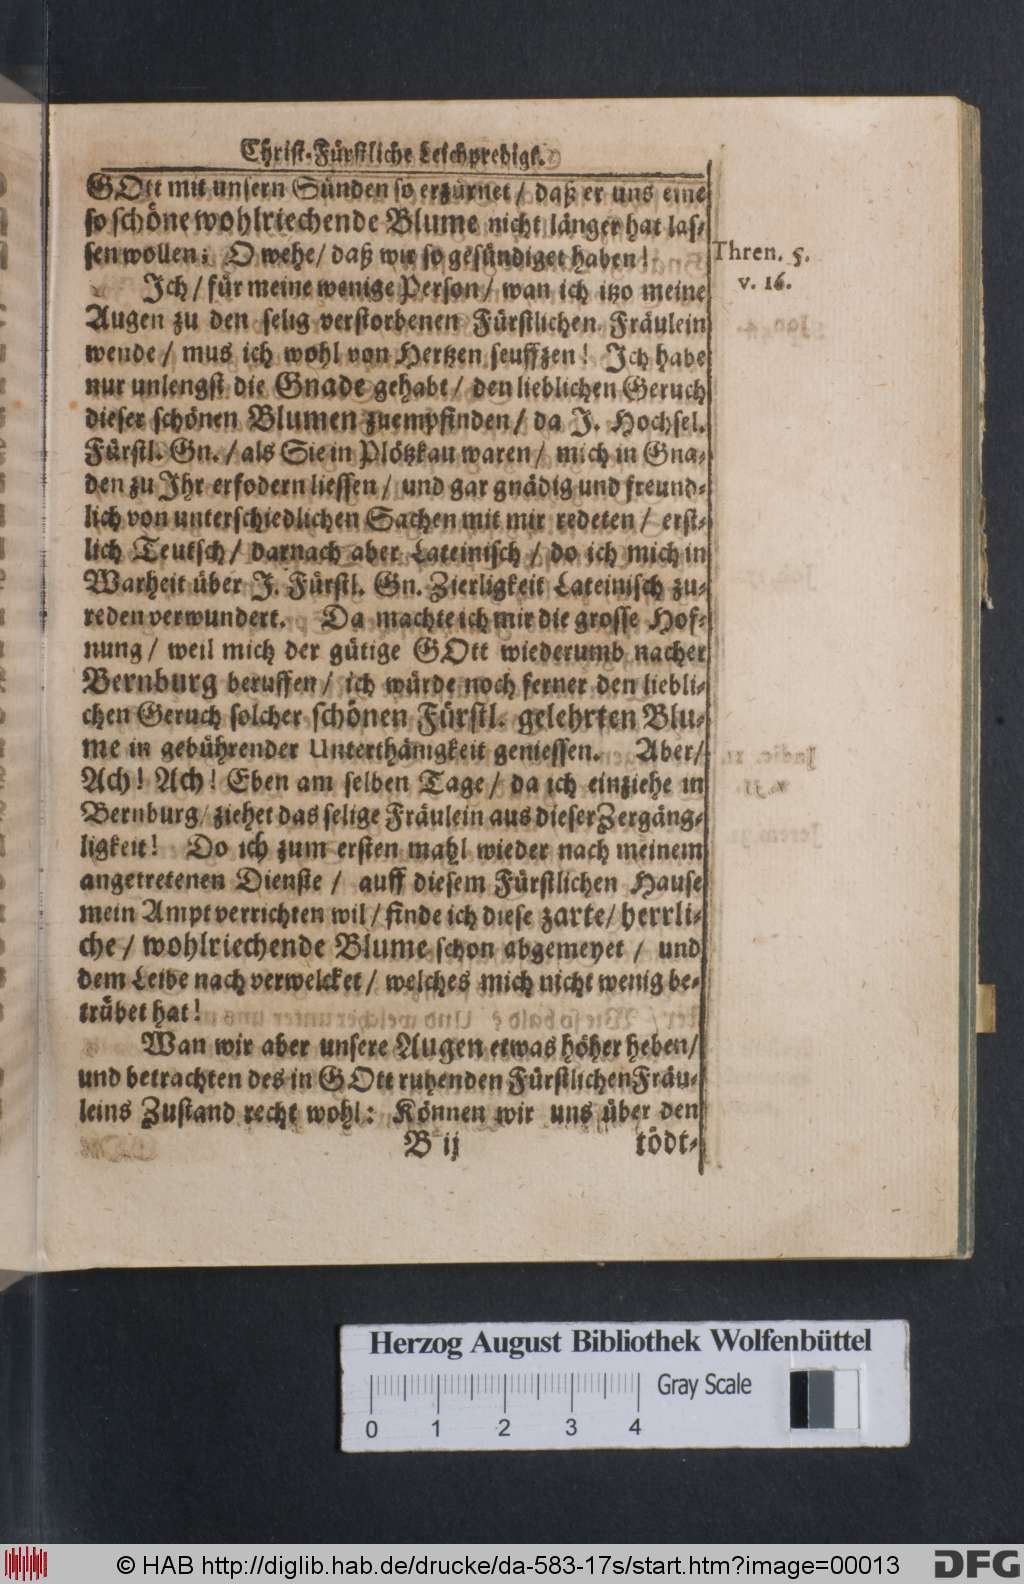 Christ-Fürstliche Leichpredigt.
GOtt mit unsern Sünden so erzürnet / daß er uns eine
so schöne wohlriechende Blume nicht länger hat las-
sen wollen: O wehe / daß wir so gesündiget haben!
Thren. 5.
v. 16.
Ich / für meine wenige Person / wan ich itzo meine
Augen zu den selig verstorbenen Fürstlichen Fräulein
wende / mus ich wohl von Hertzen seuffzen! Ich habe
nur unlengst die Gnade gehabt / den lieblichen Geruch
dieser schönen Blumen zuempfinden / da J. Hochsel.
Fürstl. Gn. / als Sie in Plötzkau waren / mich in Gna-
den zu Ihr erfodern liessen / und gar gnädig und freund-
lich von unterschiedlichen Sachen mit mir redeten / erst-
lich Teutsch / darnach aber Lateinisch / do ich mich in
Warheit über J. Fürstl. Gn. Zierligkeit Lateinisch zu-
reden verwundert. Da machte ich mir die grosse Hof-
nung / weil mich der gütige GOtt wiederumb nacher
Bernburg beruffen / ich würde noch ferner den liebli-
chen Geruch solcher schönen Fürstl. gelehrten Blu-
me in gebührender Unterthänigkeit geniessen. Aber /
Ach! Ach! Eben am selben Tage / da ich einziehe in
Bernburg / ziehet das selige Fräulein aus dieser Zergäng-
ligkeit! Do ich zum ersten mahl wieder nach meinem
angetretenen Dienste / auff diesem Fürstlichen Hause
mein Ampt verrichten wil / finde ich diese zarte / herrli-
che / wohlriechende Blume schon abgemeyet / und
dem Leibe nach verwelcket / welches mich nicht wenig be-
trübet hat!
Wan wir aber unsere Augen etwas höher heben /
und betrachten des in GOtt ruhenden Fürstlichen Fräu-
leins Zustand recht wohl: Können wir uns über den
B ij
tödt-
Herzog August Bibliothek Wolfenbüttel
Gray Scale
0 1 2 3 4
© HAB http://diglib.hab.de/drucke/da-583-17s/start.htm?image=00013
DFG